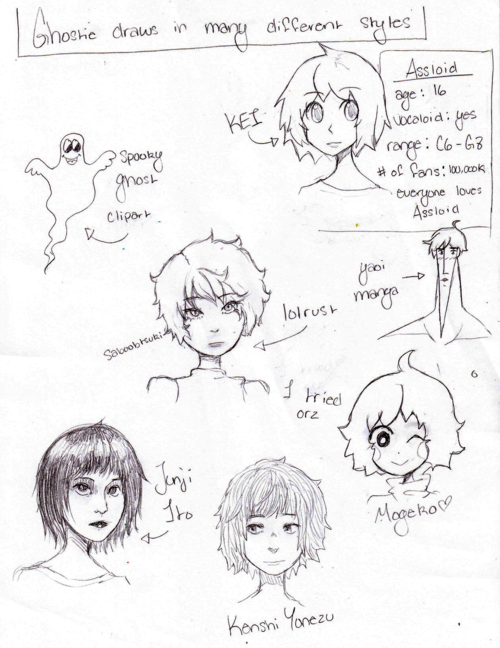 Ghostie draws in many different styles
KEI
Assloid
age: 16
vocaloid: yes
range: C6-G8
# of fans: 100,000k
everyone loves
Assloid
Spooky
ghost
clipart
yaoi
manga
lolrust
I tried
orz
Junji
Ito
Mogeko♡
Kenshi Yonezu